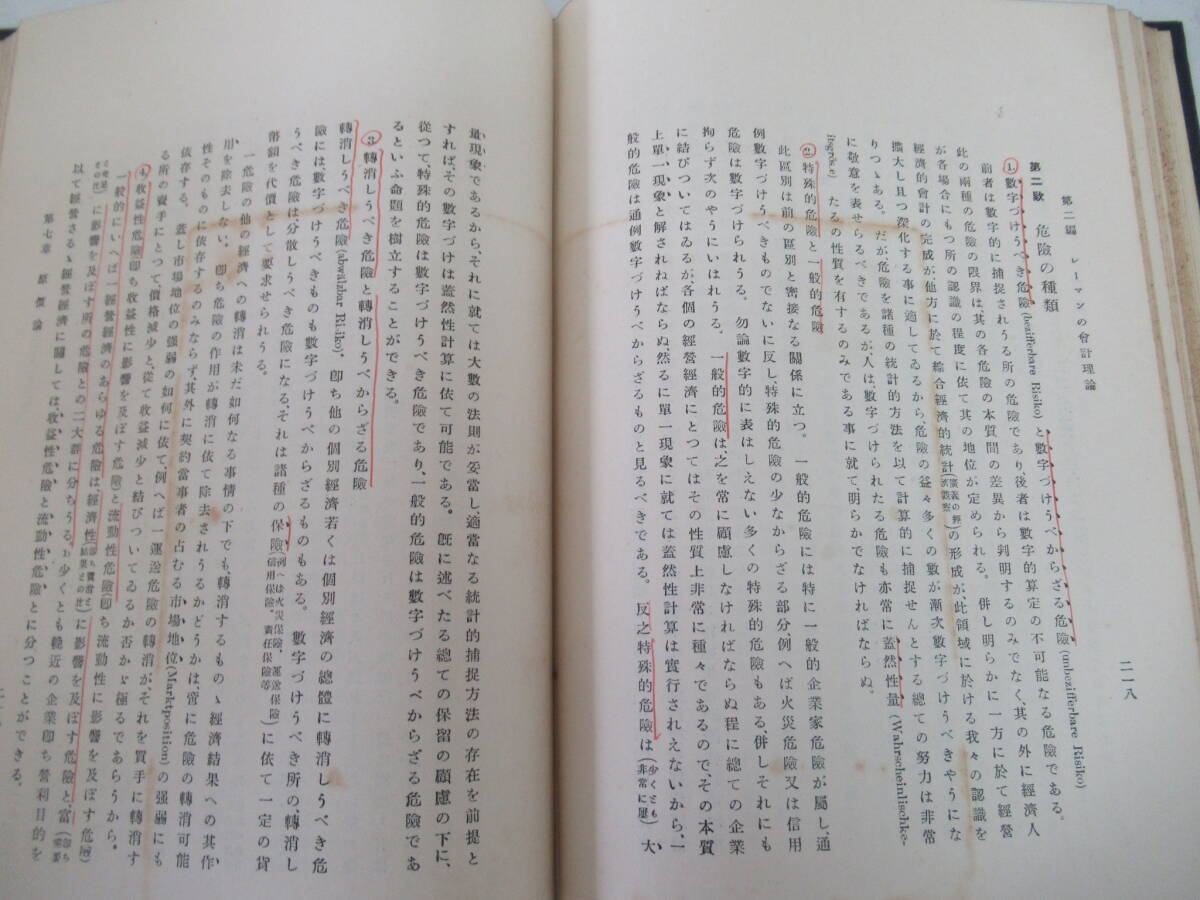 第二編　レーマンの會計理論
二一八
第二款　危險の種類
1. 數字づけうべき危險(bezifferbare Risiko)と數字づけうべからざる危險(unbezifferbare Risiko)
前者は數字的に捕捉されうる所の危險であり、後者は數字的算定の不可能なる危險である。
此の兩種の危險の限界は、其の各危險の本質間の差異から判明するのみでなく、其の外に經濟人
が各場合にもつ所の認識の程度に依て其の地位が定められる。併し明らかに一方に於て經營
經濟的會計の完成が他方に於て綜合經濟的統計の形成が、此領域に於ける我々の認識を
擴大し且つ深化する事に適してゐるから、危險の益々多くの數が漸次數字づけうべきやうにな
りつゝある。だが危險を諸種の統計的方法を以て計算的に捕捉せんとする總ての努力は非常
に敬意を表せらるべきであるが、人は、數字づけられたる危險も亦常に蓋然性量(Wahrscheinlischke-
itsgröße)たるの性質を有するのみである事に就て、明らかでなければならぬ。
2. 特殊的危險と一般的危險
此區別は前の區別と密接なる關係に立つ。一般的危險には特に一般的企業家危險が屬し、通
例數字づけうべきものでないに反し、特殊的危險の少なからざる部分例へば火災危險又は信用
危險は數字づけられうる。勿論數字的に表はしえない多くの特殊的危險もある、併しそれにも
拘らず次のやうにいはれうる。一般的危險は、之を常に顧慮しなければならぬ程に總ての企業
に結びついてはゐるが、各個の經營經濟にとつてはその性質上非常に種々であるので、その本質
上單一現象と解されねばならぬ、然るに單一現象に就ては蓋然性計算は實行されえないから、一
般的危險は通例數字づけうべからざるものと見るべきである。反之特殊的危險は(少くとも非常に屢)大
量現象であるから、それに就ては大數の法則が妥當し、適當なる統計的捕捉方法の存在を前提と
すればその數字づけは蓋然性計算に依て可能である。既に述べたる總ての保留の顧慮の下に、
從つて特殊的危險は數字づけうべき危險であり、一般的危險は數字づけうべからざる危險であ
るといふ命題を樹立することができる。
3. 轉消しうべき危險と轉消しうべからざる危險
轉消しうべき危險(abwälzbar Risiko)、卽ち他の個別經濟若くは個別經濟の總體に轉消しうべき危
險には、數字づけうべきものも數字づけうべからざるものもある。數字づけうべき所の轉消し
うべき危險は分散しうべき危險になる、それは諸種の保險(例へば火災保險、運送保險、信用保險、責任保險等)に依て一定の貨
幣額を代價として要求せられうる。
一危險の他の經濟への轉消は未だ如何なる事情の下でも、轉消するものゝ經濟結果への其作
用を除去しない。卽ち危險の作用が轉消に依て除去されうるかどうかは、啻に危險の轉消可能
性そのものに依存するのみならず、其外に契約當事者の占むる市場地位(Marktposition)の强弱にも
依存する。蓋し市場地位の强弱の如何に依て、例へば一運送危險の轉消が、それを買手に轉消す
る所の賣手にとつて、價格減少と、從て收益減少と結びついてゐるか否かゞ極るであらうから。
4. 收益性危險(卽ち收益性に影響を及ぼす危險)と流動性危險(卽ち流動性に影響を及ぼす危險)
一般的にいへば一經營經濟のあらゆる危險は、經濟性に影響を及ぼす危險と、富
に影響を及ぼす所の危險との二大群に分ちうる。少くとも輓近の企業卽ち營利目的を
以て經營さるゝ經營經濟に關しては、收益性危險と流動性危險とに分つことができる。
第七章　原價論